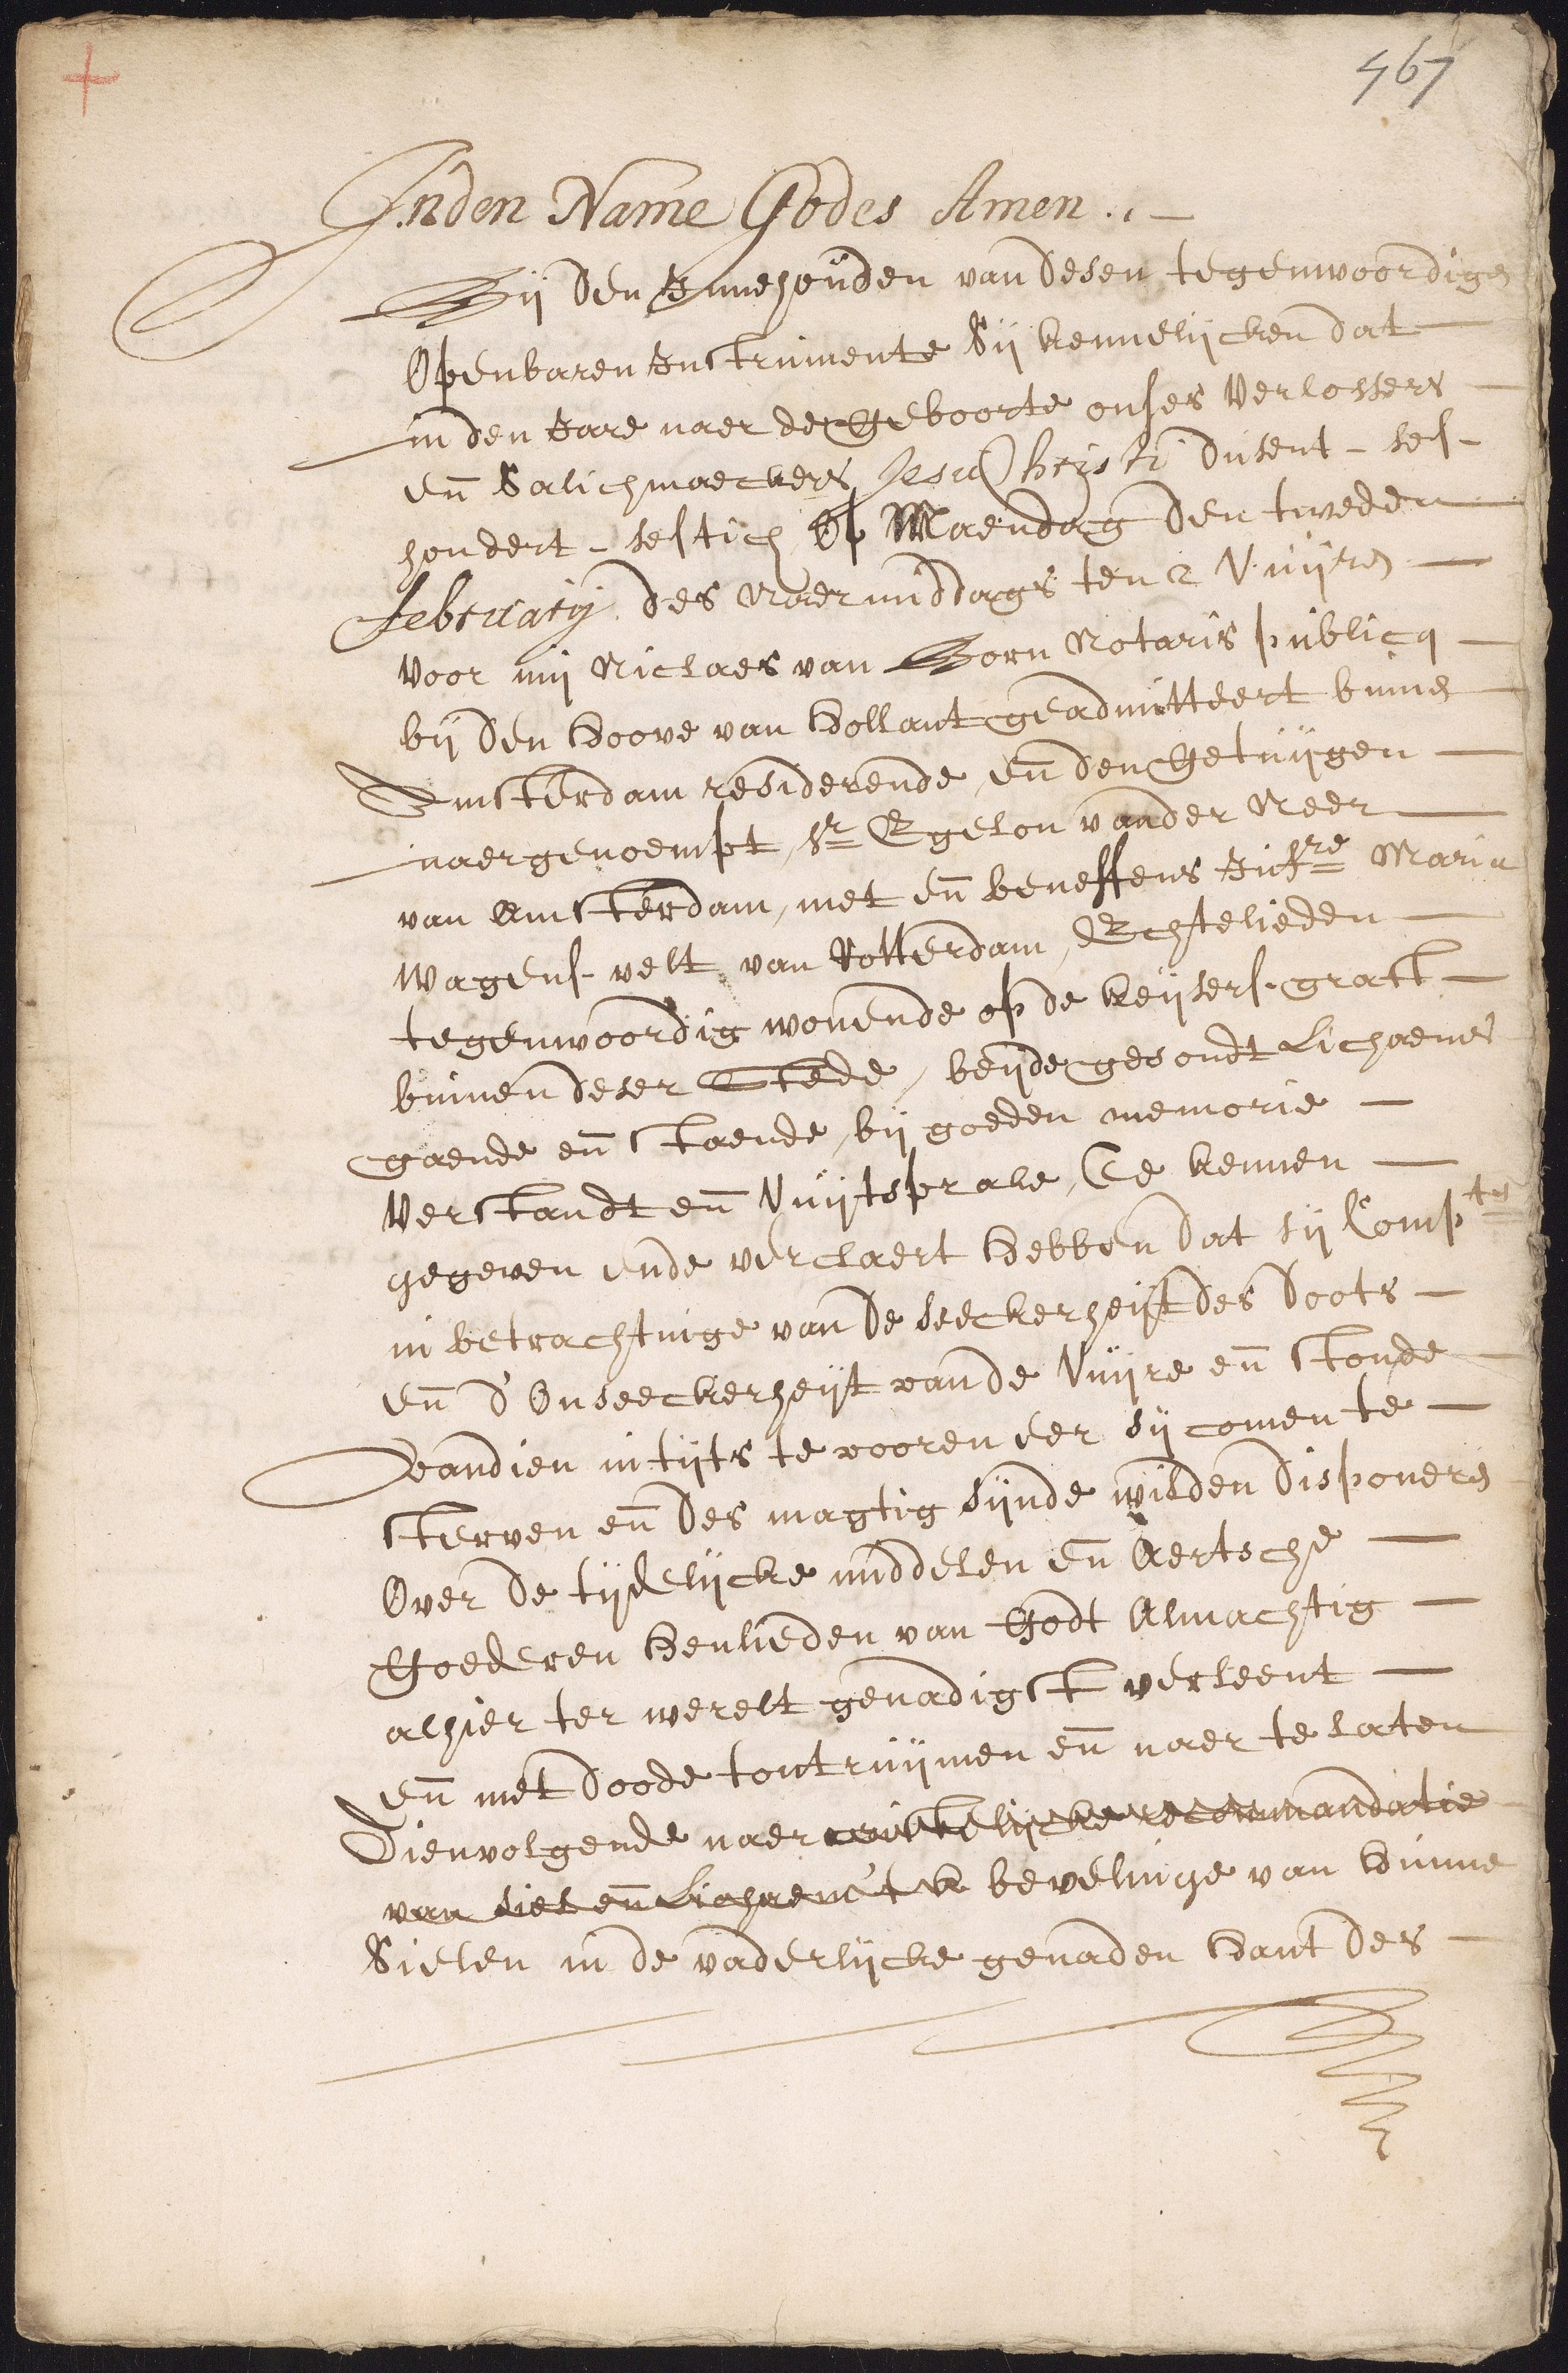 467
Inden Name Godes Amen
Bij den Innehouden van desen tegenwoordigen
Openbaren Instrumente Sij kennelijcken dat
in den Jare naer de Geboorte onses Verlossers
en Salichmaeckers Jesu Christi dusent - ses -
hondert - sestich Op Maendag den tweeden
february des Naermiddags ten 2 Vuijren
voor mij Niclaes van Born Notaris publicq
bij den Hoove van Hollant geadmitteert binnen
Amsterdam residerende, en den Getuijgen
naergenoempt, Sr Egelon vander Neer
van Amsterdam, met en beneffens Jufre Maria
Wagens-velt van Rotterdam, Echtelieden
tegenwoordig wonende op de keijsers-gracht
binnen deser Stede, beijde gesondt Lichaems
gaende en staende, bij goeden memorie
Verstandt en Vuijtsprake, Te kennen
gegeven ende verclaert hebben dat sij Compten
in betrachtinge van de seeckerheijt des doots
en d'Onseeckerheijt van de Vuijre en stonde
vandien in tijts te vooren eer sij comen te
sterven en des magtig sijnde wilden disponeren
Over de tijdelijcke middelen en Aertsche
Goederen henlieden van Godt Almachtig
alhier ter werelt genadigst verleent
en met doode tontruijmen en naer te laten
Dienvolgende naer christelijcke recommandatie
van siel en Lichaem 't bevelinge van hunne
Sielen in de vaderlijcke genaden hant des